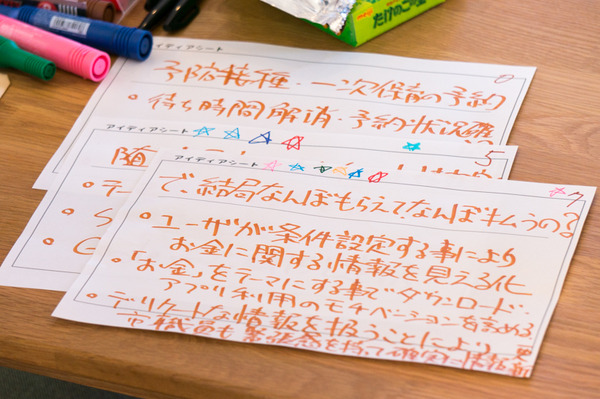 たけのこの里
アイディアシート
6
予防接種・一次保育の予約
・待ち時間解消・予約状況
アイディアシート
5
随
アイディアシート
7
で、結局なんぼもらえてなんぼ払うの?
・ユーザが条件設定する事により
お金に関する情報を見える化
・「お金」をテーマにする事でダウンロード・
アプリ利用のモチベーションを高める
・デリケートな情報を扱うことにより
市職員も緊張感を持って確実な情報